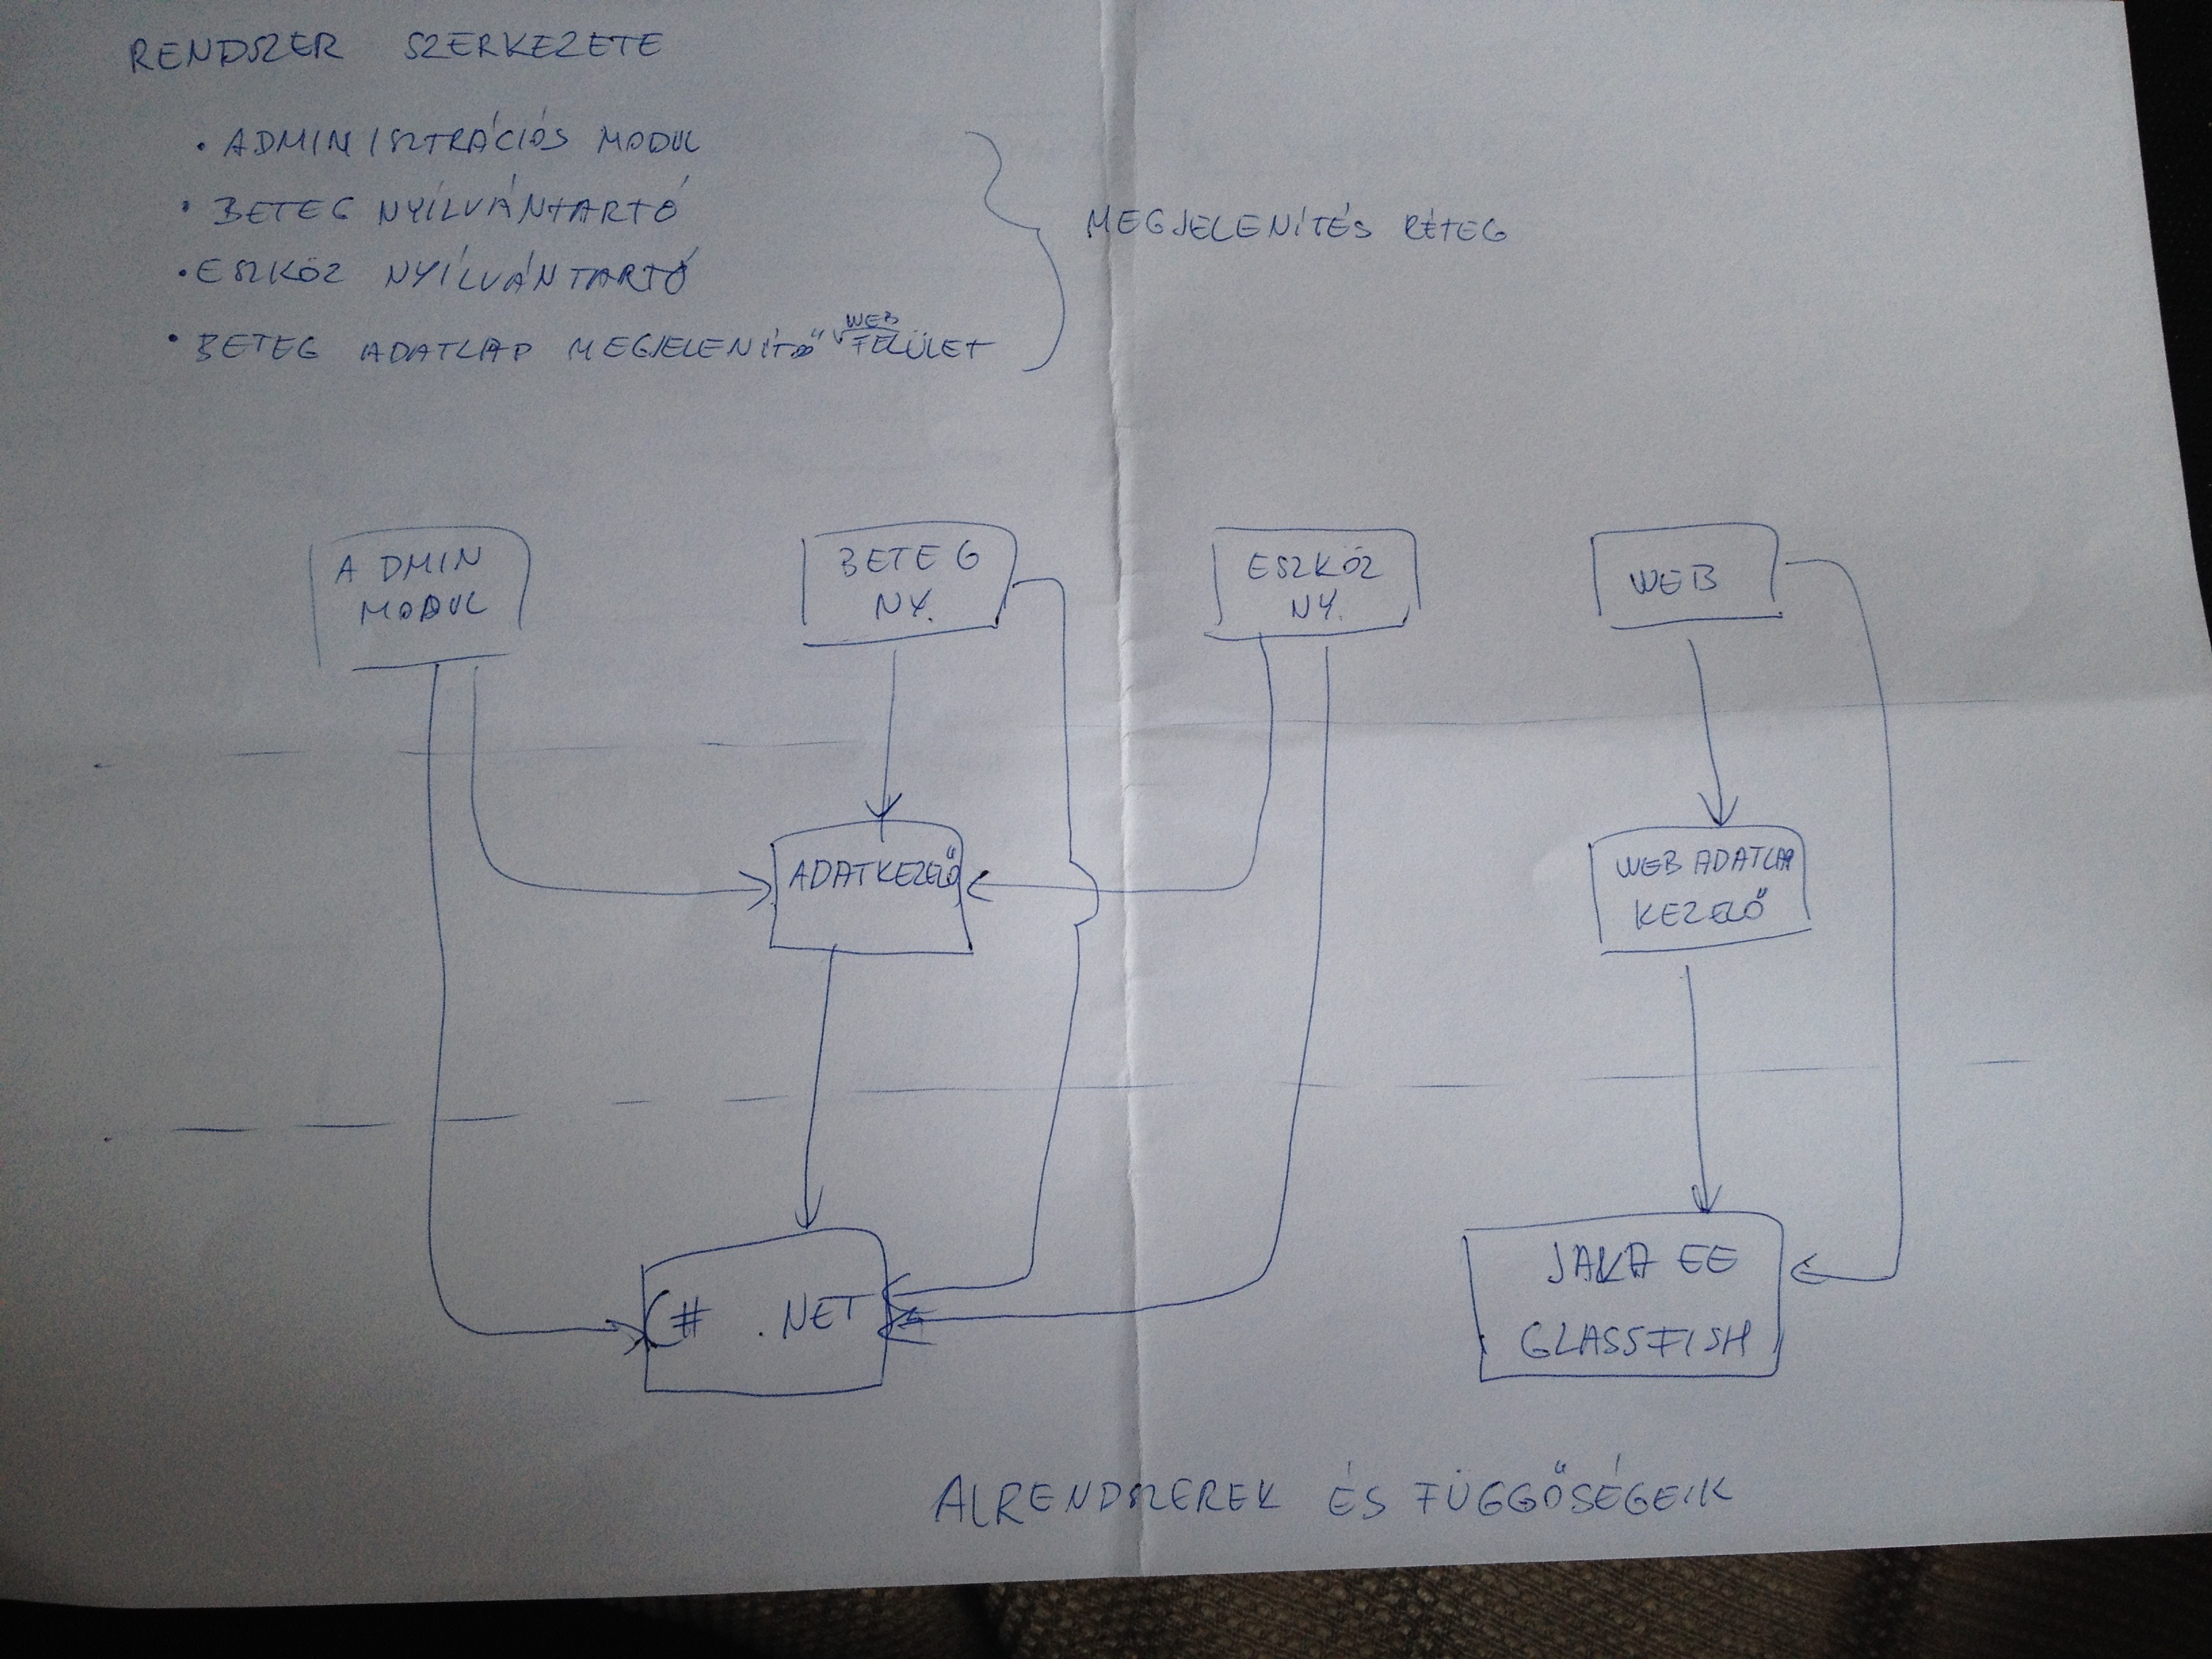 RENDSZER SZERKEZETE
• ADMINISZTRÁCIÓS MODUL
• BETEG NYÍLVÁNTARTÓ
• ESZKÖZ NYÍLVÁNTARTÓ
• BETEG ADATLAP MEGJELENÍTŐ WEB FELÜLET
MEGJELENÍTÉS RÉTEG
ADMIN
MODUL
BETEG
NY.
ESZKÖZ
NY.
WEB
ADATKEZELŐ
WEB ADATLAP
KEZELŐ
C# .NET
JAKA EE
GLASSFISH
ALRENDSZEREK ÉS FÜGGŐSÉGEIK